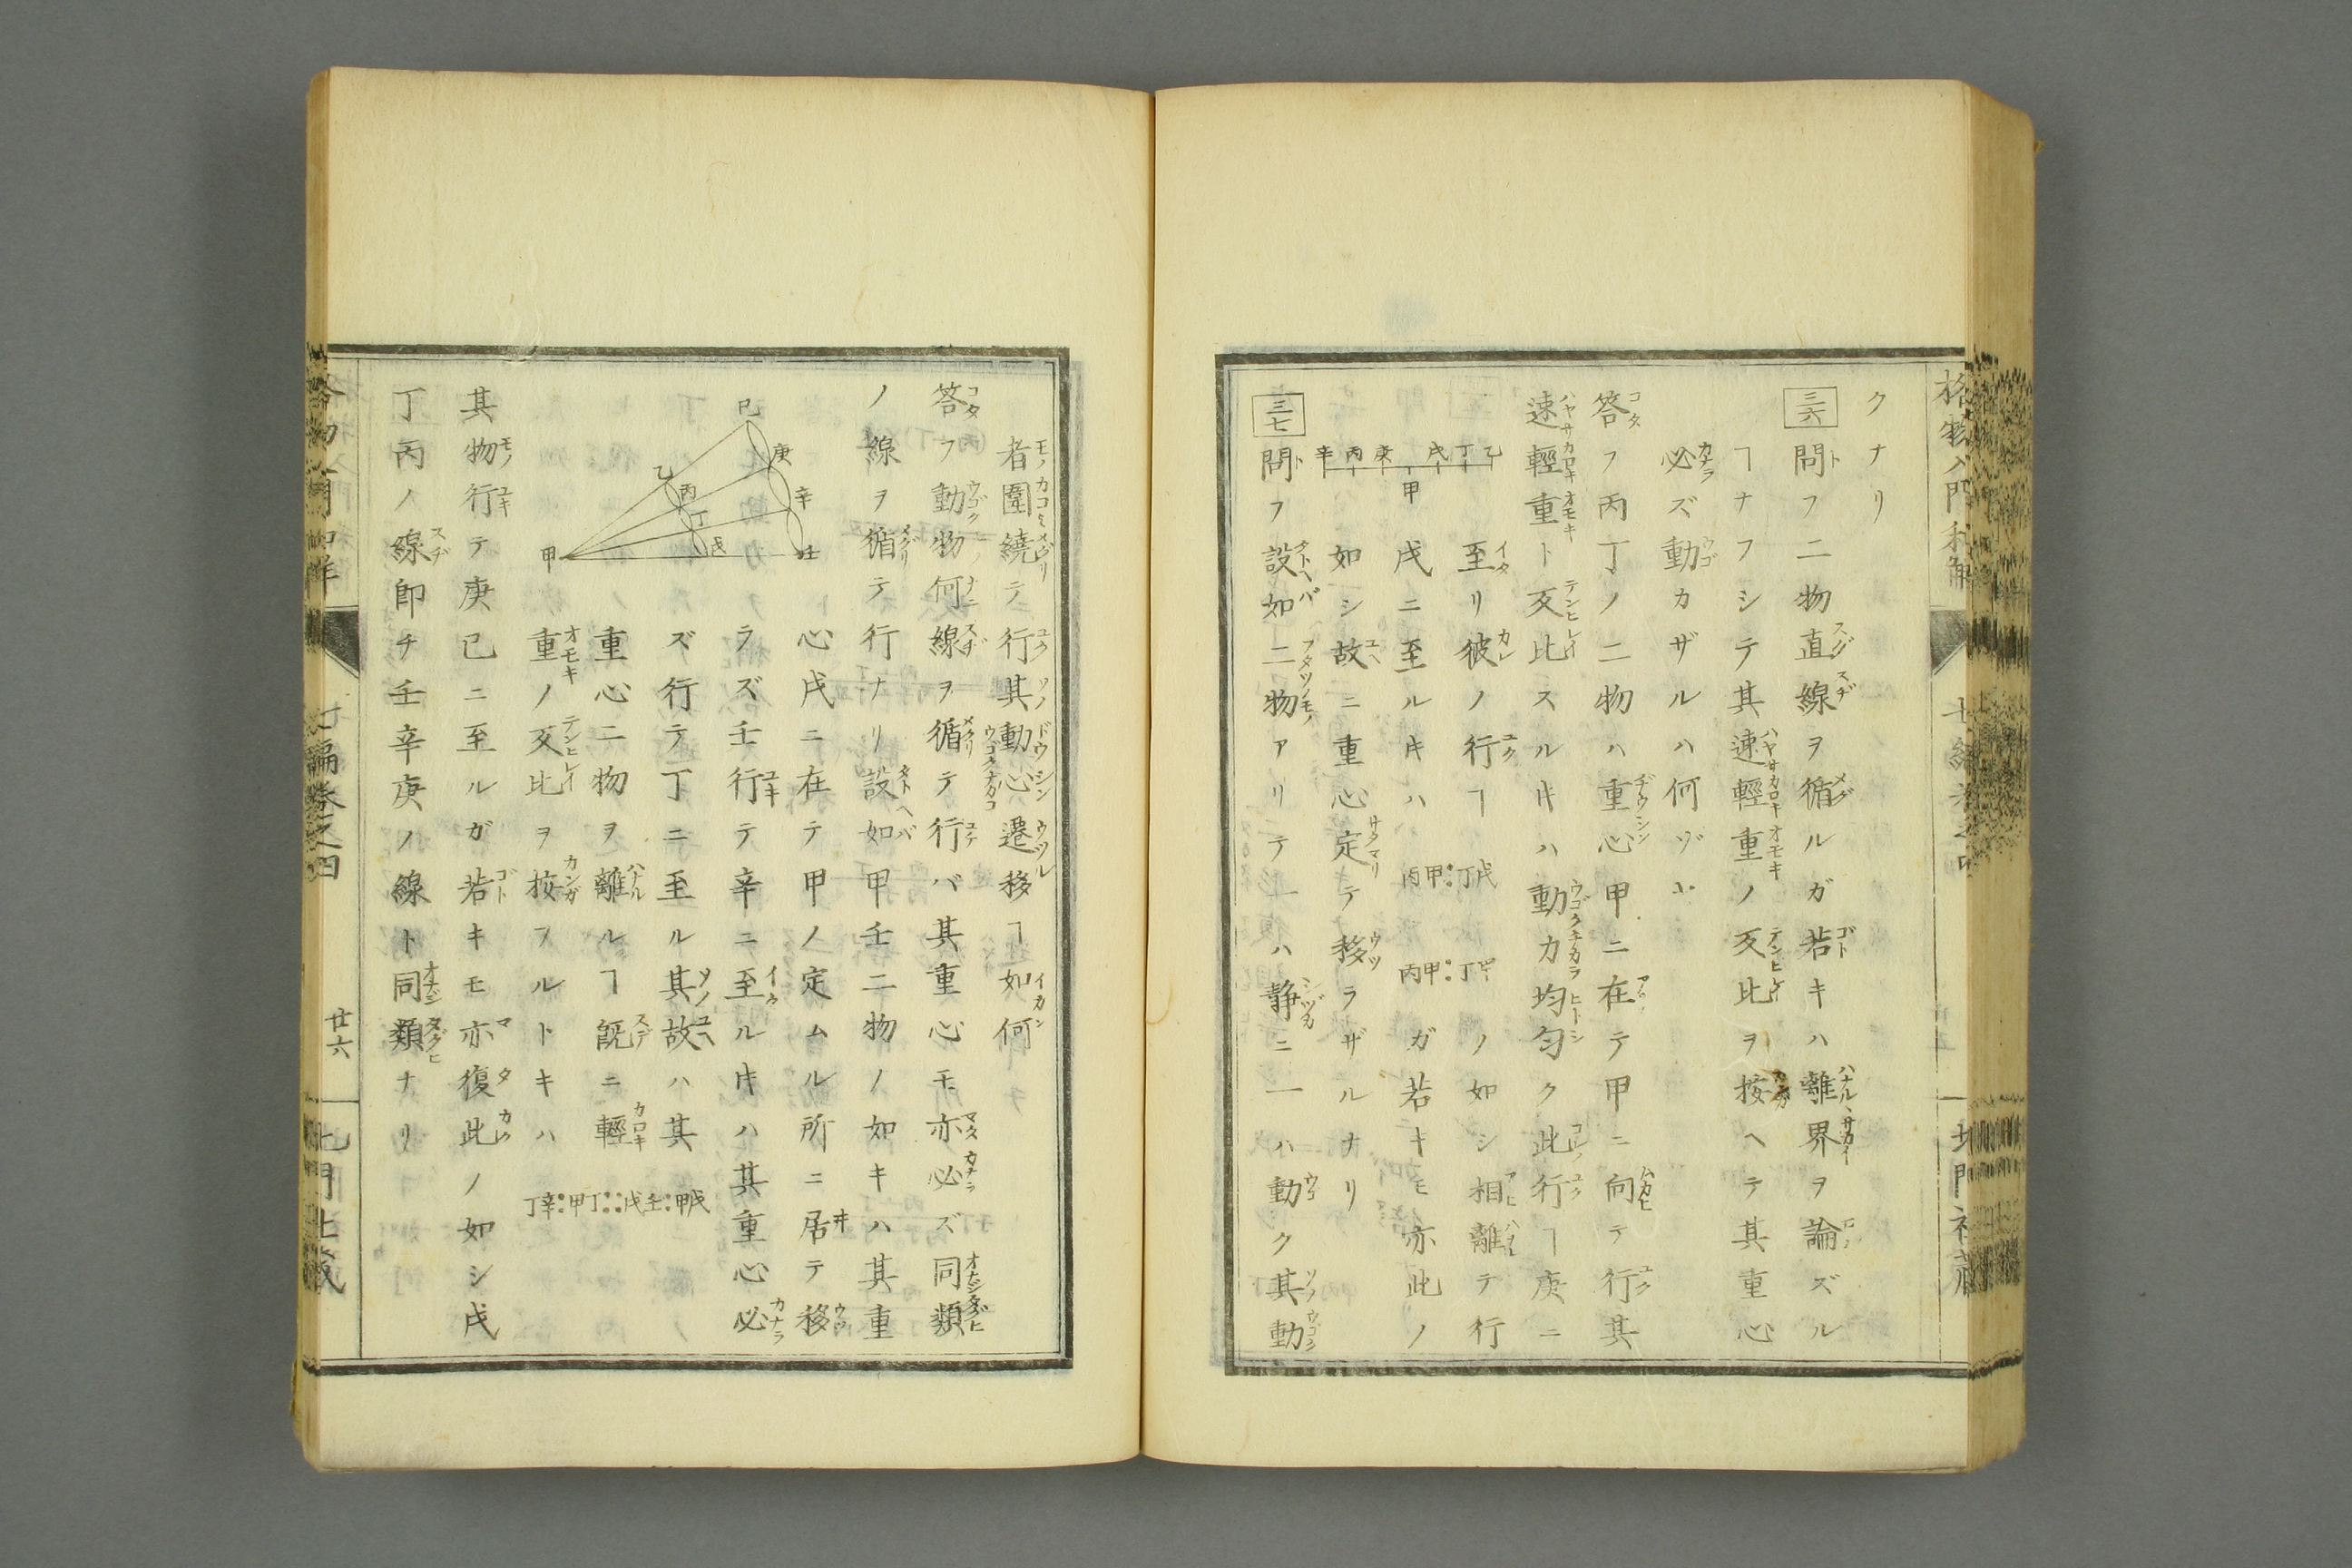 格物入門和解
クナリ
三六
問フ二物直線ヲ循ルガ若キハ離界ヲ論ズル
ヿナフシテ其速輕重ノ反比ヲ按ヘテ其重心
必ズ動カザルハ何ゾヤ
答フ丙丁ノ二物ハ重心甲ニ在テ甲ニ向テ行其
速輕重ト反比スル時ハ動力均匀ク此行ヿ庚ニ
乙丁戊甲庚丙辛
至リ彼ノ行ヿ
戊ニ至ル時ハ
丁戊:甲丙
ノ如シ相離テ行
ガ若キモ亦此ノ
如シ故ニ重心定テ移ラザルナリ
三七
問フ設如二物アリテ一ハ静ニ一ハ動ク其動
者圍繞テ行其動心遷移ヿ如何
答フ動物何線ヲ循テ行バ其重心モ亦必ズ同類
ノ線ヲ循テ行ナリ設如甲壬二物ノ如キハ其重
心戊ニ在テ甲ノ定ムル所ニ居テ移
ラズ壬行テ辛ニ至ル時ハ其重心必
ズ行テ丁ニ至ル其故ハ其
重心二物ヲ離ルヿ既ニ輕
重ノ反比ヲ按フルトキハ
甲戊:壬戊::甲丁:辛丁
己庚辛壬乙丙丁戊甲
其物行テ庚己ニ至ルガ若キモ亦復此ノ如シ戊
丁丙ノ線即チ壬辛庚ノ線ト同類ナリ
卷之四
廿六
北門社藏